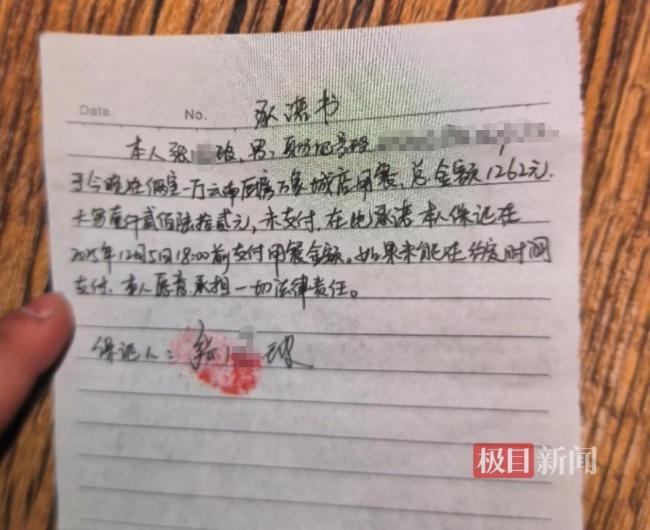 Date. No. 承诺书
本人张 玻,男,身份证号码
于今晚在俩室一厅云南厨房万象城店用餐,总金额1262元.
大写壹仟贰佰陆拾贰元,未支付,在此承诺本人保证在
2025年12月5日18:00前支付用餐金额。如果未能在约定时间
支付,本人愿意承担一切法律责任。
保证人:张 玻
极目新闻